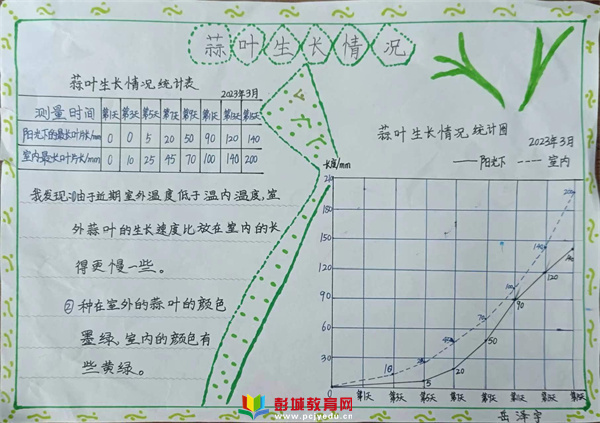 蒜叶生长情况
蒜叶生长情况统计表
2023年3月
测量时间 第1天 第3天 第5天 第7天 第9天 第11天 第13天 第15天
阳光下的最长叶片长/mm 0 0 5 20 50 90 120 140
室内最长叶片长/mm 0 10 25 45 70 100 140 200
我发现:①由于近期室外温度低于温内温度,室
外蒜叶的生长速度比放在室内的长
得更慢一些。
②种在室外的蒜叶的颜色
墨绿,室内的颜色有
些黄绿。
蒜叶生长情况统计图
2023年3月
阳光下 室内
长度/mm
210
180
150
120
90
60
30
0
10 25 45 70 100 140 200
5 20 50 90 120 140
岳泽宇
彭城教育网
www.pcjyedu.cn